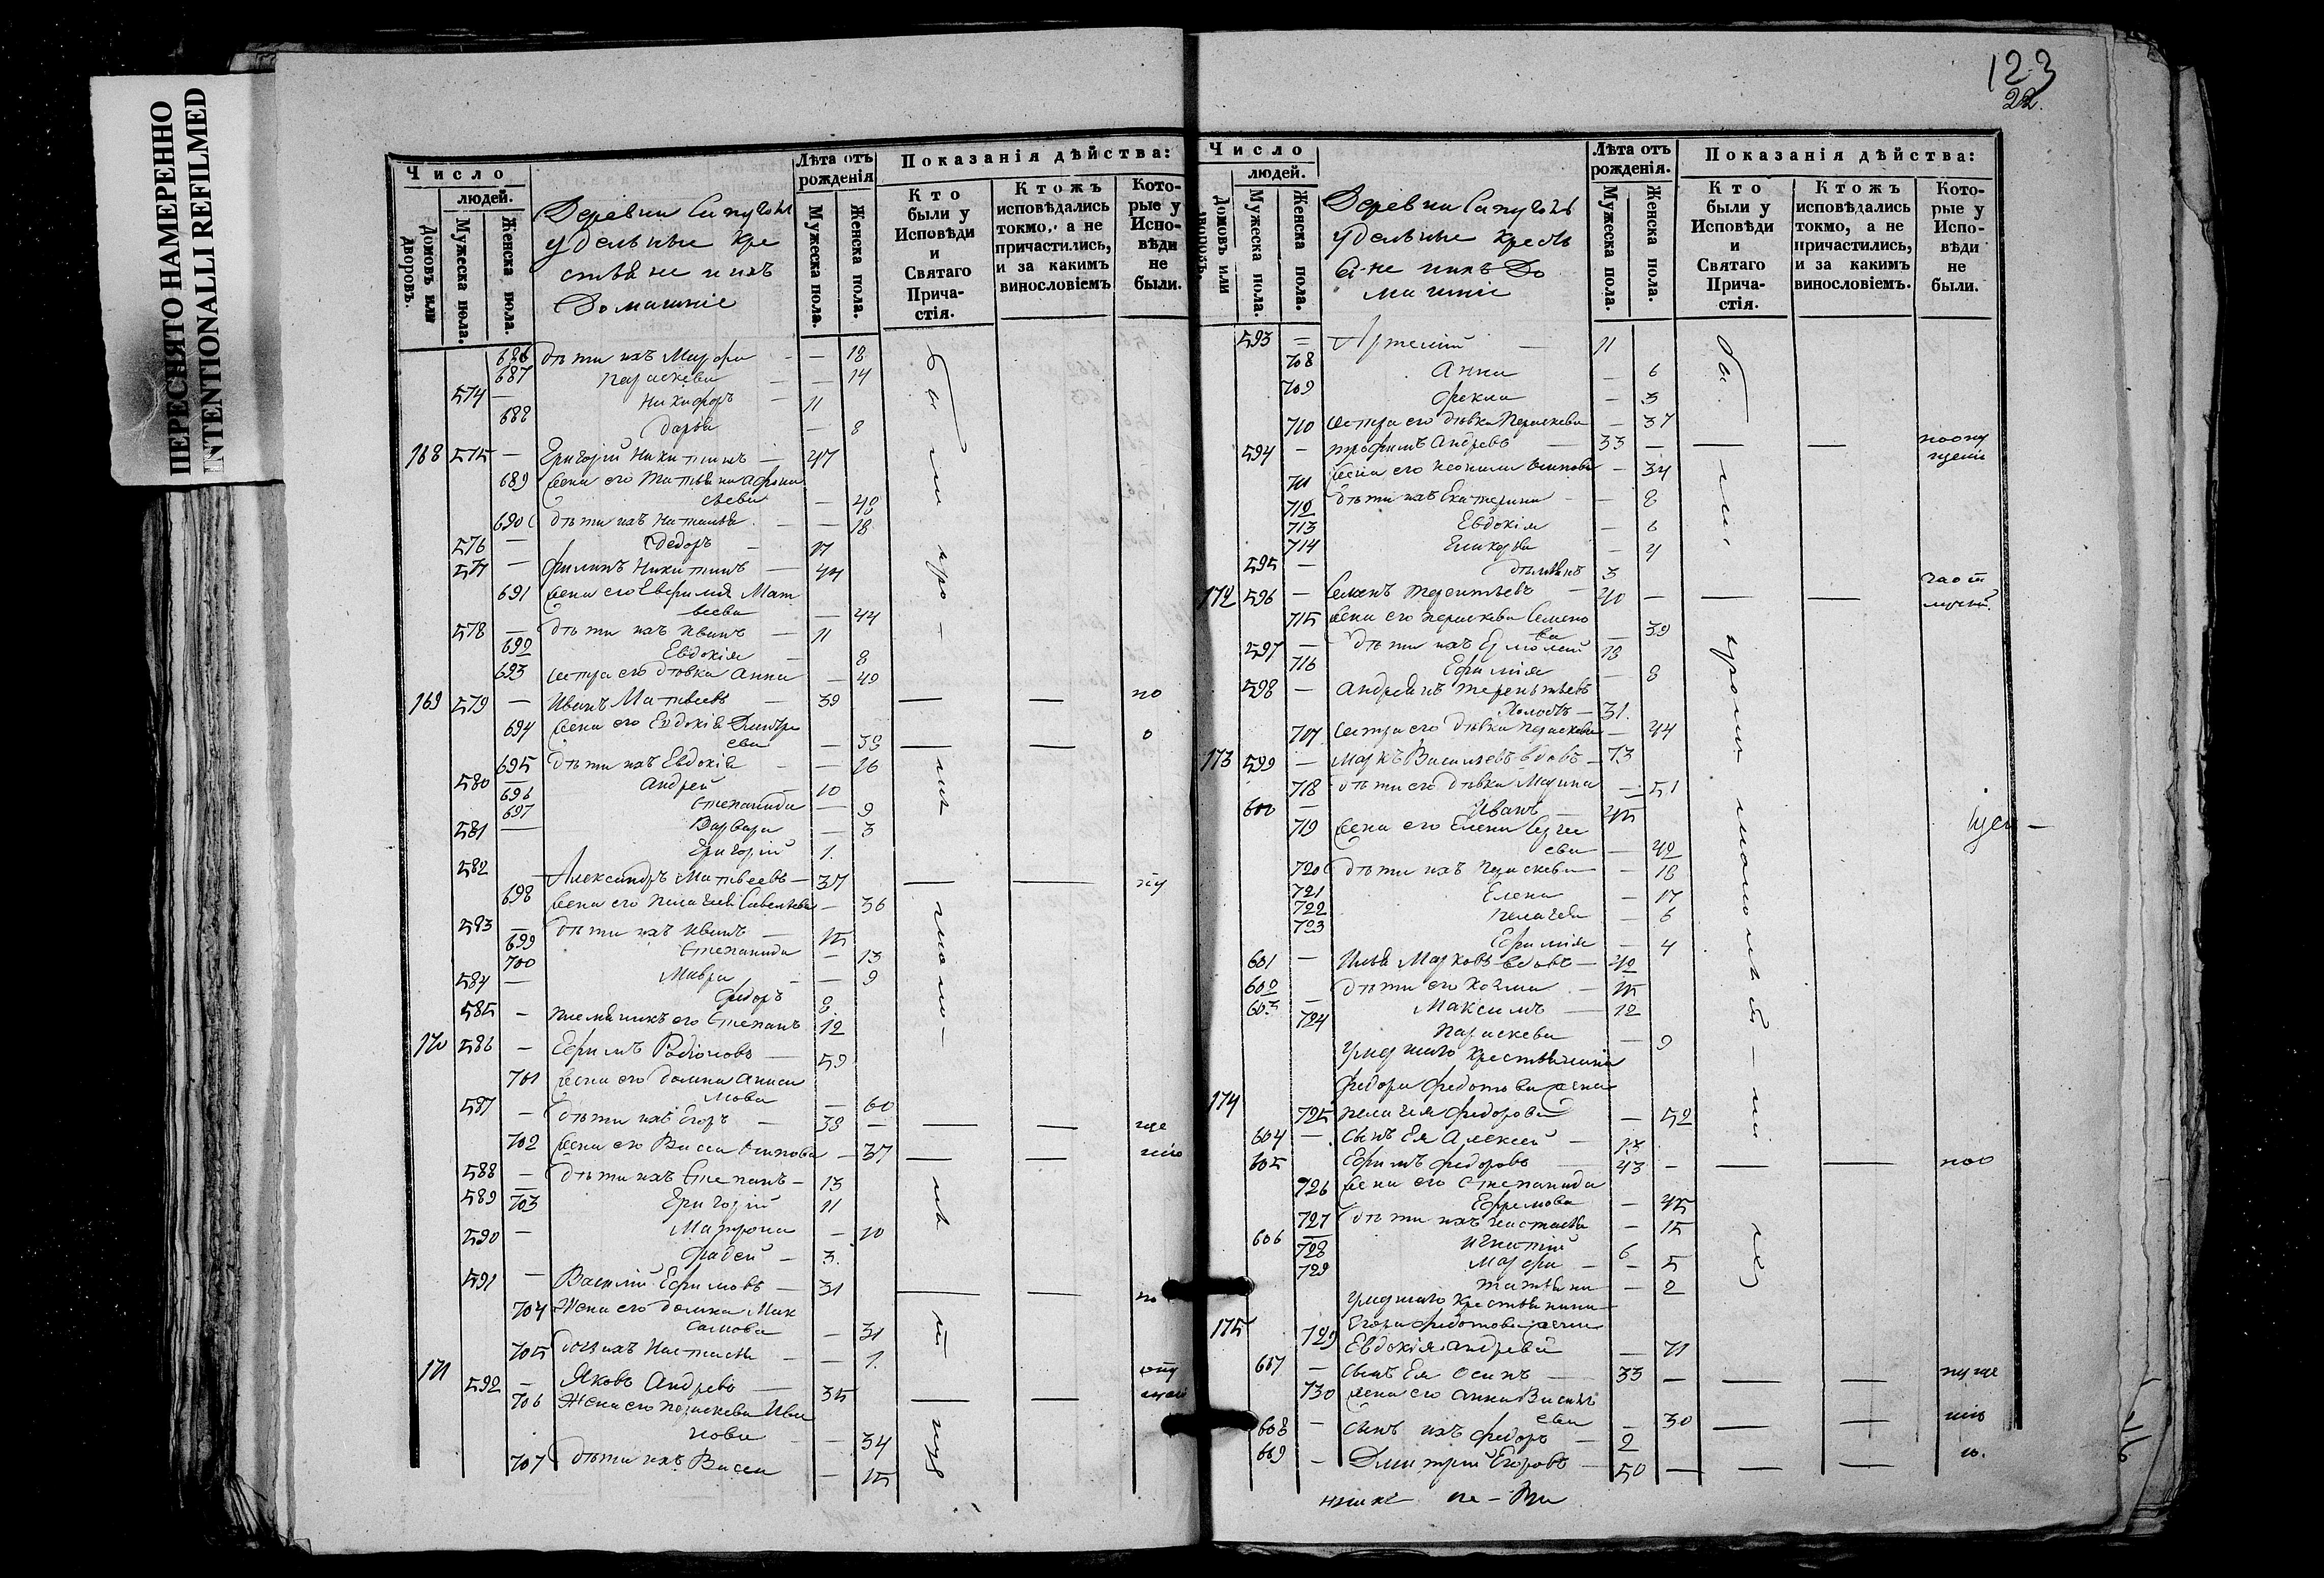 ПЕРЕСНЯТО НАМЕРЕННО
INTENTIONALLI REFILMED
Число
людей.
Домовъ или дворовъ.
Мужеска пола.
Женска пола.
Деревни
удельные кре
стьяне и ихъ
домашніе
Лѣта отъ рожденія
Мужеска пола.
Женска пола.
Показанія дѣйства:
Кто были у Исповѣди и Святаго Прича-стія.
Ктожъ исповѣдались токмо, а не причастились, и за какимъ винословіемъ
Кото-рые у Испо-вѣди не были.
686 дѣти ихъ Марфа — 18
687 Параскева — 14
574 — Никифоръ — 11
688 Дарья — 8
168 575 — Григорій Никитинъ — 47
689 жена его Татьяна Афона
сьева — 48
690 дѣти ихъ Наталья — 18
576 — Федоръ — 17
577 — Филипъ Никитинъ — 44
691 жена его Евфимія Мат
веева — 44
578 — дѣти ихъ Иванъ — 11
692 Евдокія — 8
693 сестра его дѣвка Анна — 49
169 579 — Иванъ Матвеевъ — 39 — — по
694 жена его Евдокія Дмитре
ева — 38 — — о
695 дѣти ихъ Евдокія — 16
580 — Андрей 10
696 Степанида — 9
697 Варвара — 3
581 — Григорій 1.
582 Александръ Матвеевъ — 37 — — пу
698 жена его Пелагея Савельева — 36
583 — дѣти ихъ Иванъ — 15
699 Степанида — 13
700 Мавра — 9
584 — Федоръ 8.
585 — племяникъ его Степанъ 12
170 586 — Ефимъ Родіоновъ — 59
701 жена его Домна Аниси
мова — 60
587 — дѣти ихъ Егоръ — 38 — — — ще
702 жена его Васса Осипова — 37 — — нію
588 — дѣти ихъ Степанъ — 13
589 — Григорій 11
703 Матрона — 10
590 — Фадей — 3.
591 — Василій Ефимовъ — 31 — — по
704 Жена его Домна Мак
симова — 31
705 дочь ихъ Настасья — 1.
171 592 — Яковъ Андревъ — 35 — — опу
706 Жена его Параскева Ива
нова — 34
707 дѣти ихъ Васса — 15
123
22.
Число
людей.
Домовъ или дворовъ.
Мужеска пола.
Женска пола.
Деревни
удельные кресть
яне и ихъ до
машніе
Лѣта отъ рожденія.
Мужеска пола.
Женска пола.
Показанія дѣйства:
Кто были у Исповѣди и Святаго Прича-стія.
Ктожъ исповѣдались токмо, а не причастились, и за какимъ винословіемъ.
Кото-рые у Испо-вѣди не были.
593 — Артемій — 11
708 Анна — 6
709 Фекла — 3
710 сестра его дѣвка Параскева — 37
594 — Трофимъ Андревъ — 33 — — — поопу
щенію
711 жена его Неонила Осипова — 34
712 дѣти ихъ Екатерина — 8
713 Евдокія — 6
714 Гликерья — 4
595 — 3
172 596 — Семенъ Терентьевъ — 40 — — —
715 жена его Параскева Семено
ва — 39
597 — дѣти ихъ Ермолай 13
716 Ефимія — 8
598 — Андреянъ Терентьевъ
Холостъ — 31.
717 сестра его дѣвка Параскева — 44
173 599 — Маркъ Васильевъ вдовъ — 73
718 дѣти его дѣвка Марина — 51
600 — Иванъ — 45
719 жена его Елена Сергее
ева — 42
720 дѣти ихъ Параскева — 18
721 Елена — 17
722 Пелагея — 6
723 Ефимія — 4
601 — Илья Марковъ вдовъ — 40
602 дѣти его Козма — 15
603 — Максимъ — 12
724 Параскева — 9
умершаго крестьянина
Федора Федотова жена
174 725 Пелагея Федорова — 52
604 — сынъ Ея Алексей — 13
605 Ефимъ Федоровъ — 43 — — — поо
726 жена его Степанида
Ефремова — 45
727 дѣти ихъ Настасья — 15
606 — Игнатій 6
728 Марфа — 5
729 Татьяна — 2
умершаго крестьянина
Егора Федотова жена
175 729 Евдокія Андрева — 71
607 — сынъ Ея Осипъ — 33 — — — пуще
730 жена его Анна Василь
ева — 30 — — нію
608 — сынъ ихъ Федоръ — 2
609 — Дмитрій Егоровъ — 50 — — — ю.